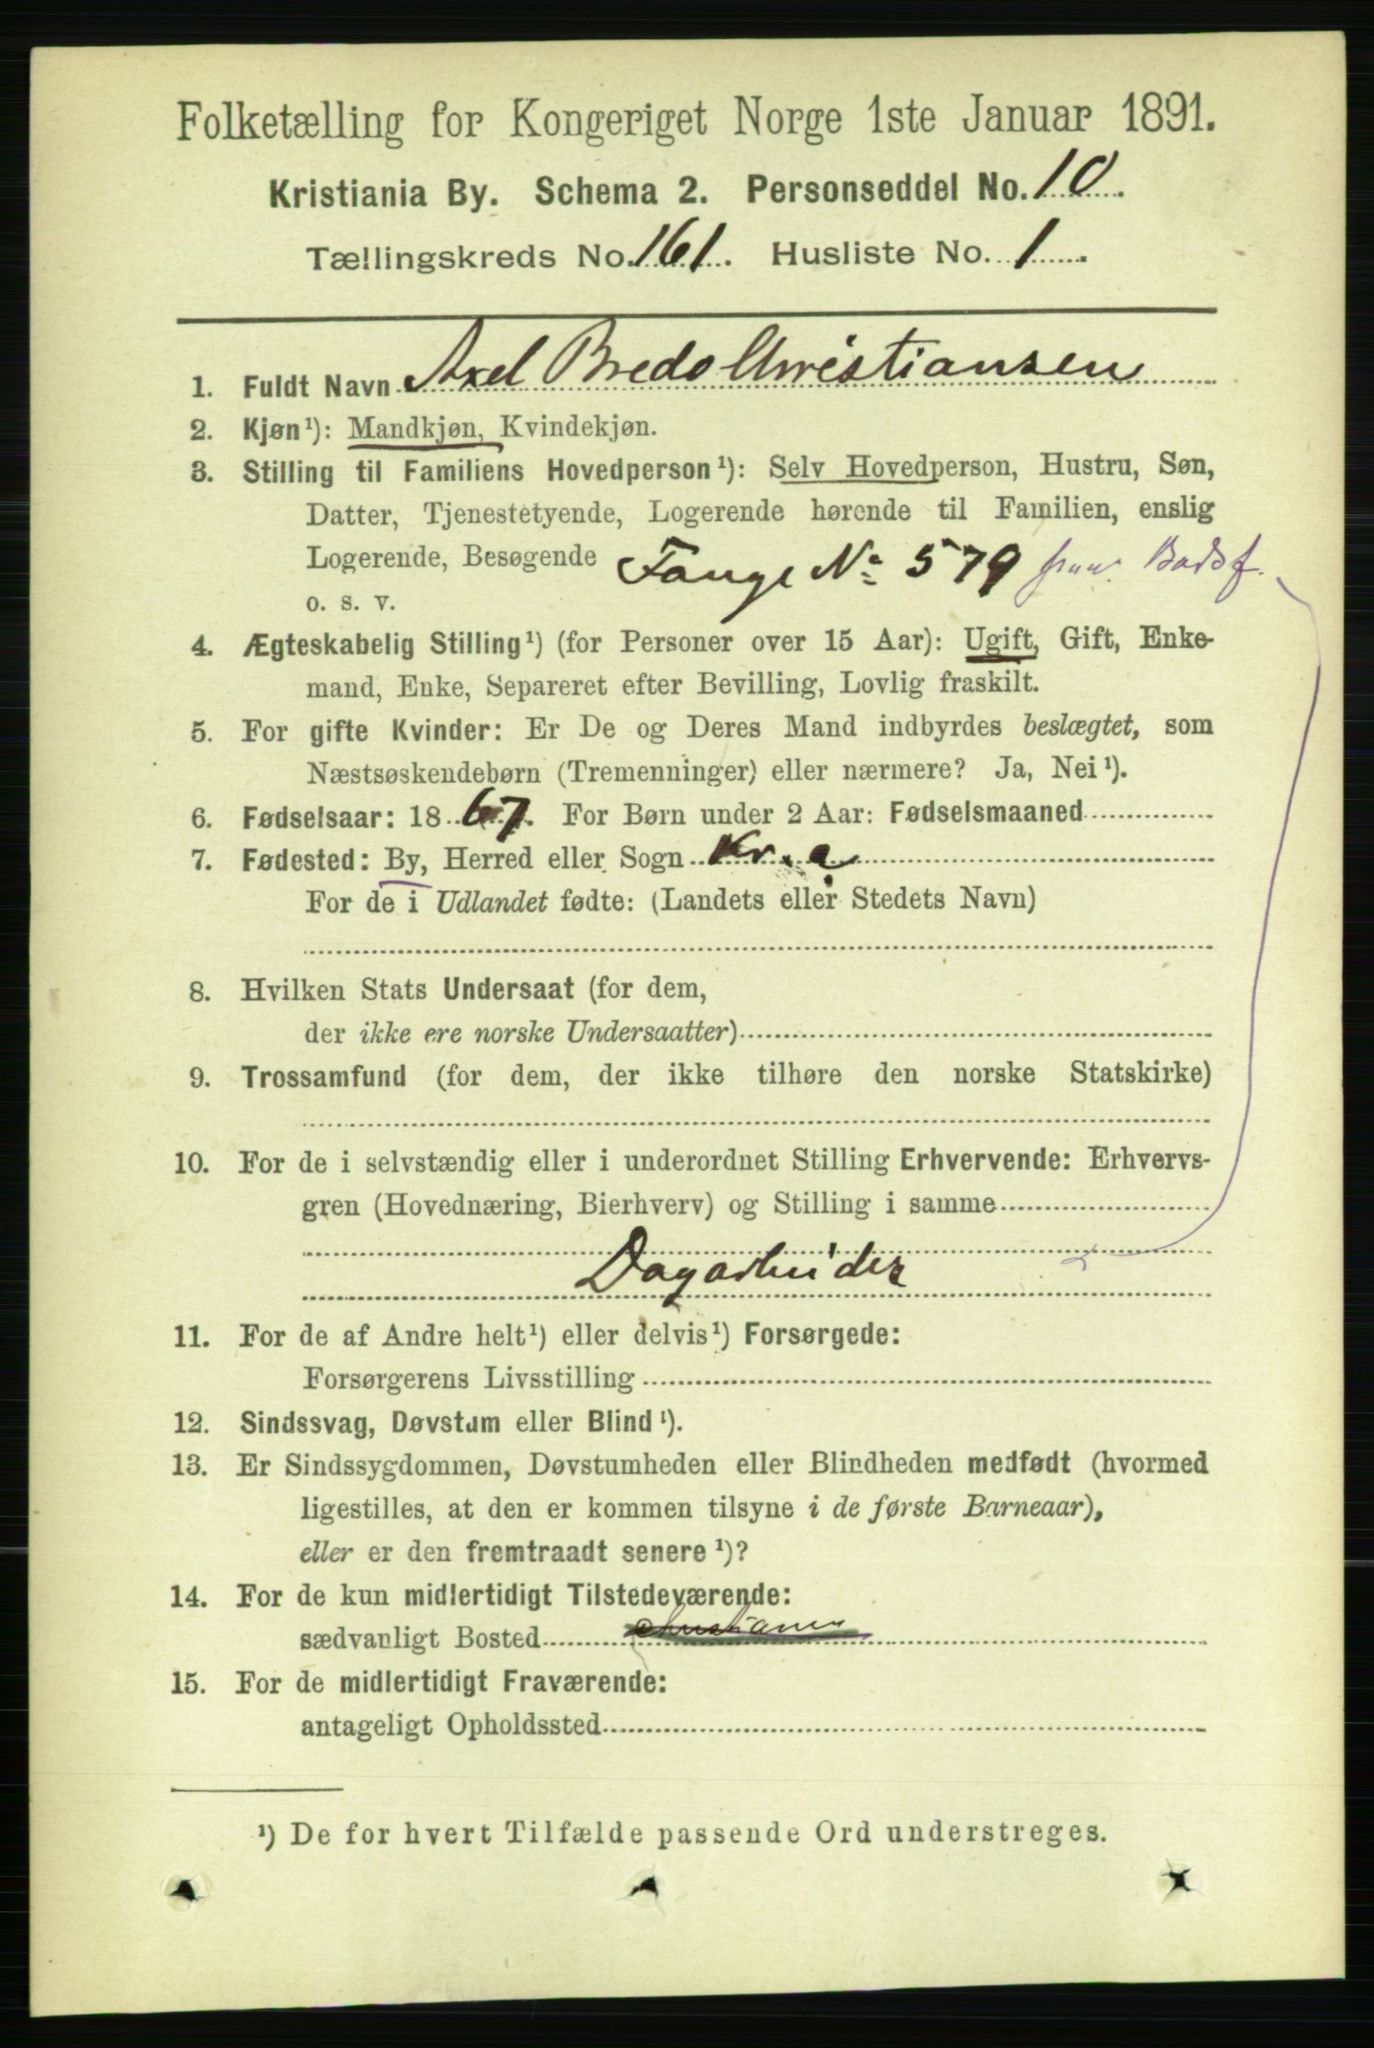 Folketælling for Kongeriget Norge 1ste Januar 1891.
Kristiania By. Schema 2. Personseddel No. 10.
Tællingskreds No. 161. Husliste No. 1.
1. Fuldt Navn Axel Bredo Christiansen
2. Kjøn¹): Mandkjøn, Kvindekjøn.
3. Stilling til Familiens Hovedperson¹): Selv Hovedperson, Hustru, Søn,
Datter, Tjenestetyende, Logerende hørende til Familien, enslig
Logerende, Besøgende Fange No 579
o. s. v.
4. Ægteskabelig Stilling¹) (for Personer over 15 Aar): Ugift, Gift, Enke-
mand, Enke, Separeret efter Bevilling, Lovlig fraskilt.
5. For gifte Kvinder: Er De og Deres Mand indbyrdes beslægtet, som
Næstsøskendebørn (Tremenninger) eller nærmere? Ja, Nei¹).
6. Fødselsaar: 1867. For Børn under 2 Aar: Fødselsmaaned
7. Fødested: By, Herred eller Sogn Kr.a
For de i Udlandet fødte: (Landets eller Stedets Navn)
8. Hvilken Stats Undersaat (for dem,
der ikke ere norske Undersaatter)
9. Trossamfund (for dem, der ikke tilhøre den norske Statskirke)
10. For de i selvstændig eller i underordnet Stilling Erhvervende: Erhvervs-
gren (Hovednæring, Bierhverv) og Stilling i samme
Dagarbeider
11. For de af Andre helt¹) eller delvis¹) Forsørgede:
Forsørgerens Livsstilling
12. Sindssvag, Døvstum eller Blind¹).
13. Er Sindssygdommen, Døvstumheden eller Blindheden medfødt (hvormed
ligestilles, at den er kommen tilsyne i de første Barneaar),
eller er den fremtraadt senere¹)?
14. For de kun midlertidigt Tilstedeværende:
sædvanligt Bosted Christiania
15. For de midlertidigt Fraværende:
antageligt Opholdssted
¹) De for hvert Tilfælde passende Ord understreges.